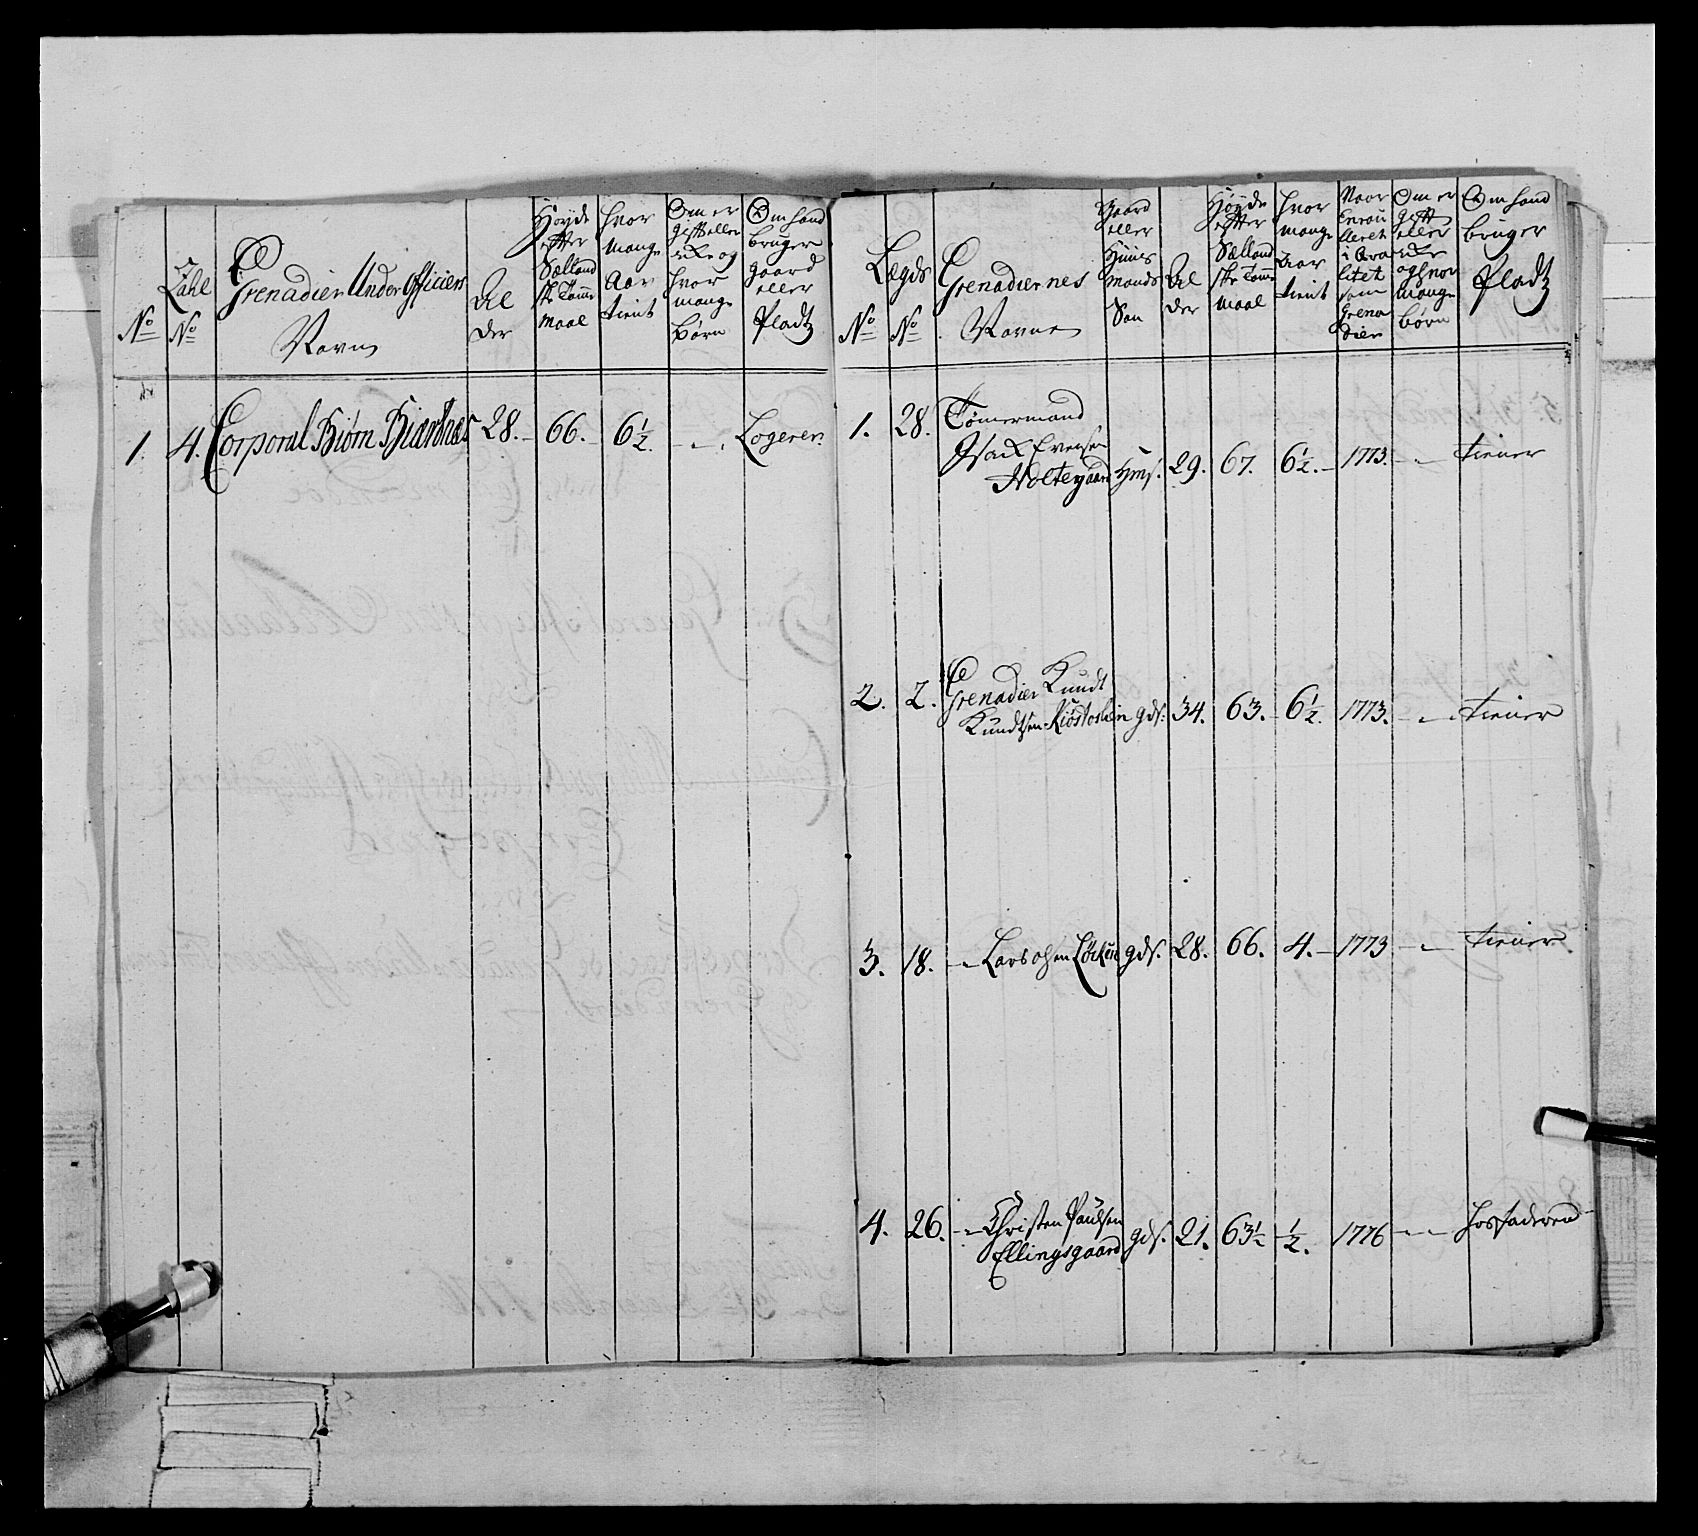 No
Zahl No
Grenadier UnderOfficiers
Navn
Al
der
Høyde
efter
Sælland
ske Tomme
maal
hvor
mange
Aar
tient
Om er
gift eller
ikke og
hvor
mange
børn
Om hand
bruger
gaard
eller
Pladtz
1. 4. Corporal Biørn Biærtnæs 28. 66. 6½. Logerer.
No
Lægds
No
Grenadiernes
Navne
Gaard
eller
Huus
mands
Søn
Al
der
Høyde
efter
Sælland
ske Tomme
maal
hvor
mange
Aar
tient
Naar
litet
som
Grena
dier
Om er
gift
eller
ikke
og hvor
mange
børn
Om hand
bruger
Pladtz
1. 28. Tømermand
Isack Eversen
Holtegaard Hms. 29. 67. 6½. 1773. tiener
2. 2. Grenadier Knudt
Knudtsen gds. 34. 63. 6½. 1773. tiener
3. 18. Lars Olsen Løcken gds. 28. 66. 4. 1773 tiener
4. 26. Christen Paulsen
Ellingsgaard gds. 21. 63½ ½. 1776 hos faderen